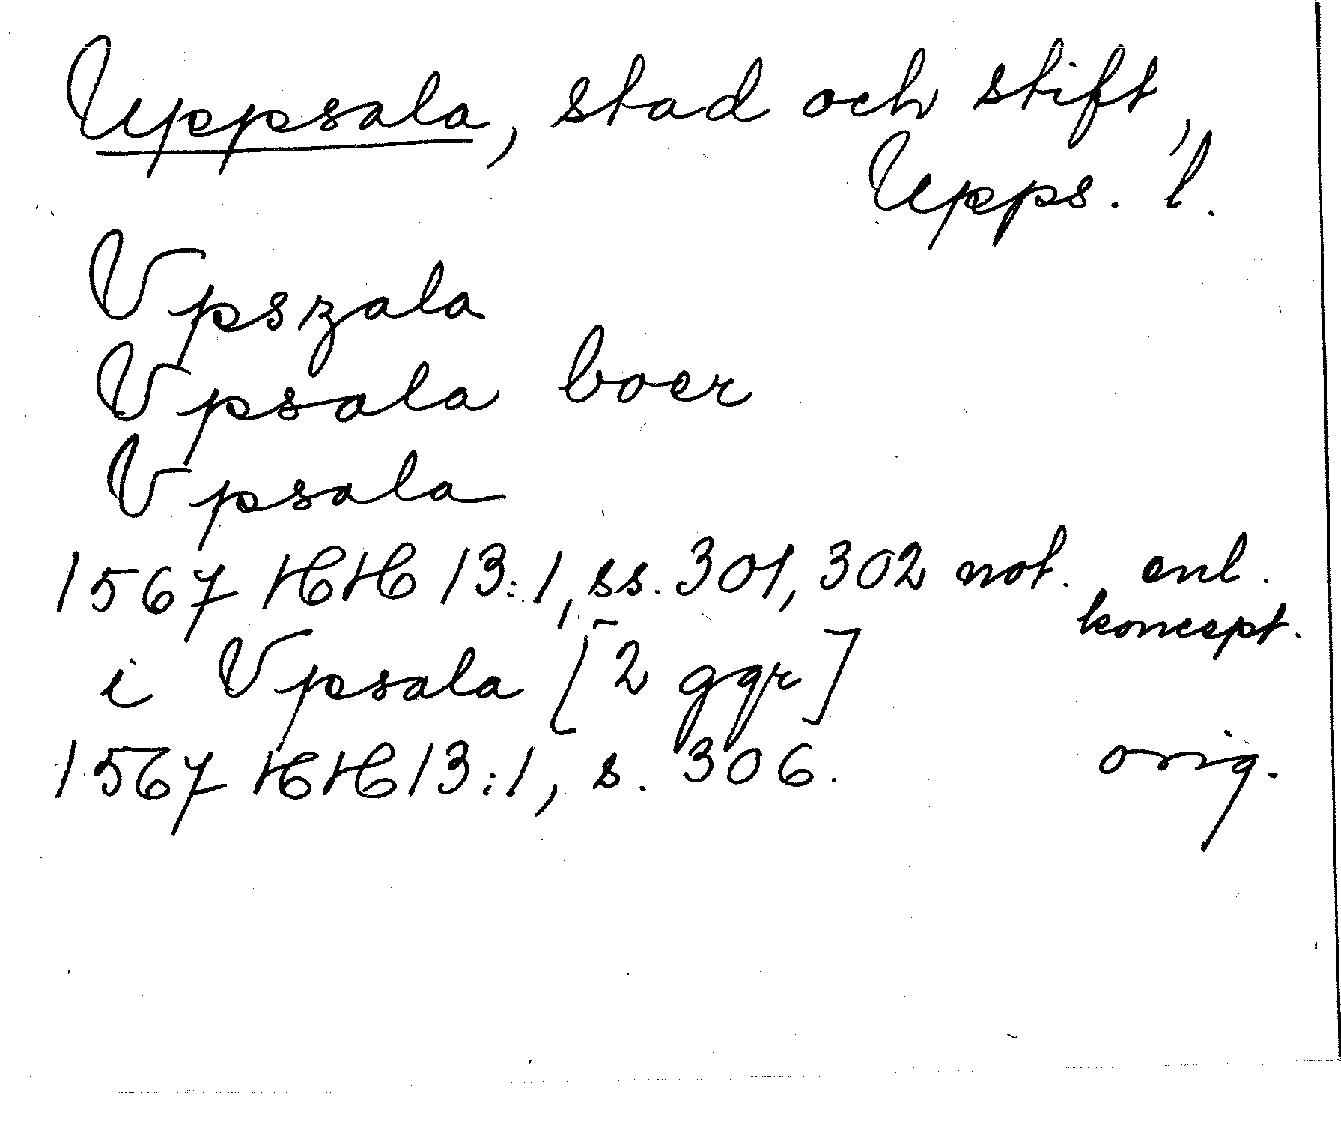 Uppsala, stad och stift,
Upps. l.
Vpszala
Vpsala boer
Vpsala
1567 HH 13:1, ss. 301, 302 not. enl.
koncept.
i Vpsala [2 ggr]
1567 HH 13:1, s. 306. orig.